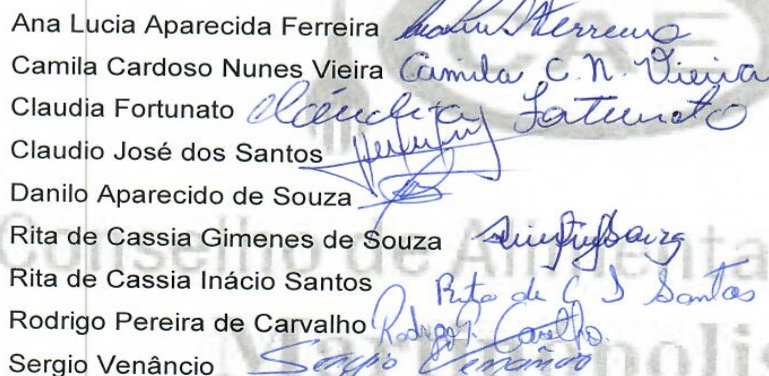 CAE
Ana Lucia Aparecida Ferreira
Camila Cardoso Nunes Vieira Camila C. N. Vieira
Claudia Fortunato Cláudia Fortunato
Claudio José dos Santos
Danilo Aparecido de Souza
Rita de Cassia Gimenes de Souza
Conselho de Alimenta
Rita de Cassia Inácio Santos Rita de C I Santos
Rodrigo Pereira de Carvalho Rodrigo P. Carvalho.
Sergio Venâncio Sergio Venâncio